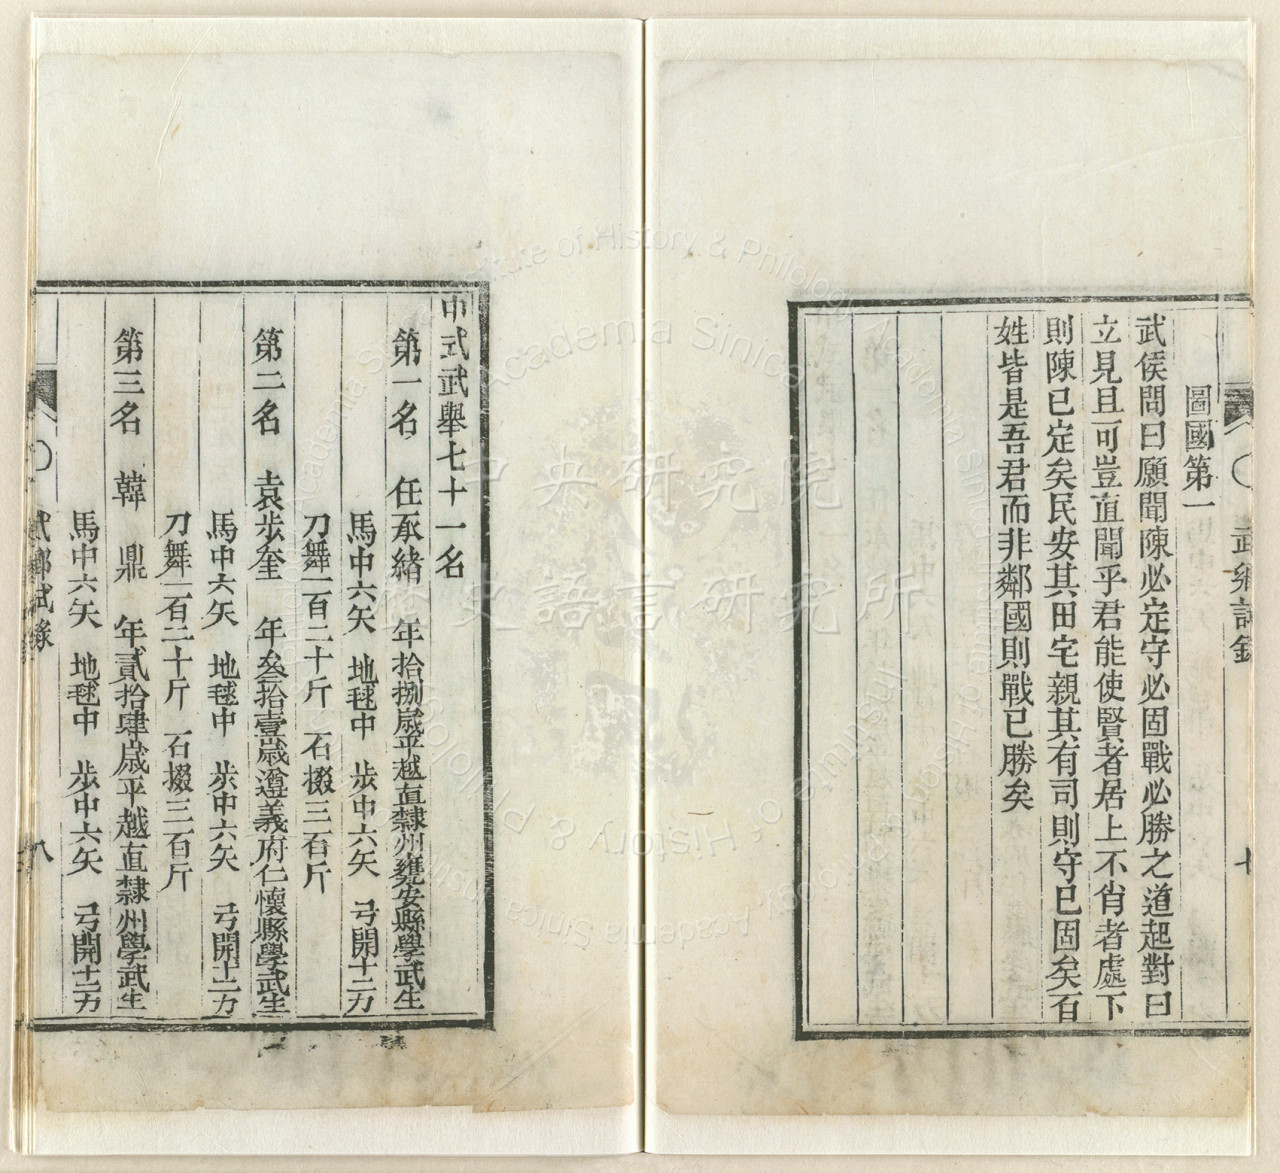 武鄉試錄
七
圖國第一
武侯問曰願聞陳必定守必固戰必勝之道起對曰
立見且可豈直聞乎君能使賢者居上不肖者處下
則陳已定矣民安其田宅親其有司則守已固矣百
姓皆是吾君而非鄰國則戰已勝矣
中式武舉七十一名
第一名 任承緒 年拾捌歲平越直隸州甕安縣學武生
馬中六矢 地毬中 步中六矢 弓開十二力
刀舞一百二十斤 石掇三百斤
第二名 袁步奎 年叁拾壹歲遵義府仁懷縣學武生
馬中六矢 地毬中 步中六矢 弓開十二力
刀舞一百二十斤 石掇三百斤
第三名 韓鼎 年貳拾肆歲平越直隸州學武生
馬中六矢 地毬中 步中六矢 弓開十二力
武鄉試錄
八
中央研究院
歷史語言研究所
Institute of History & Philology, Academia Sinica